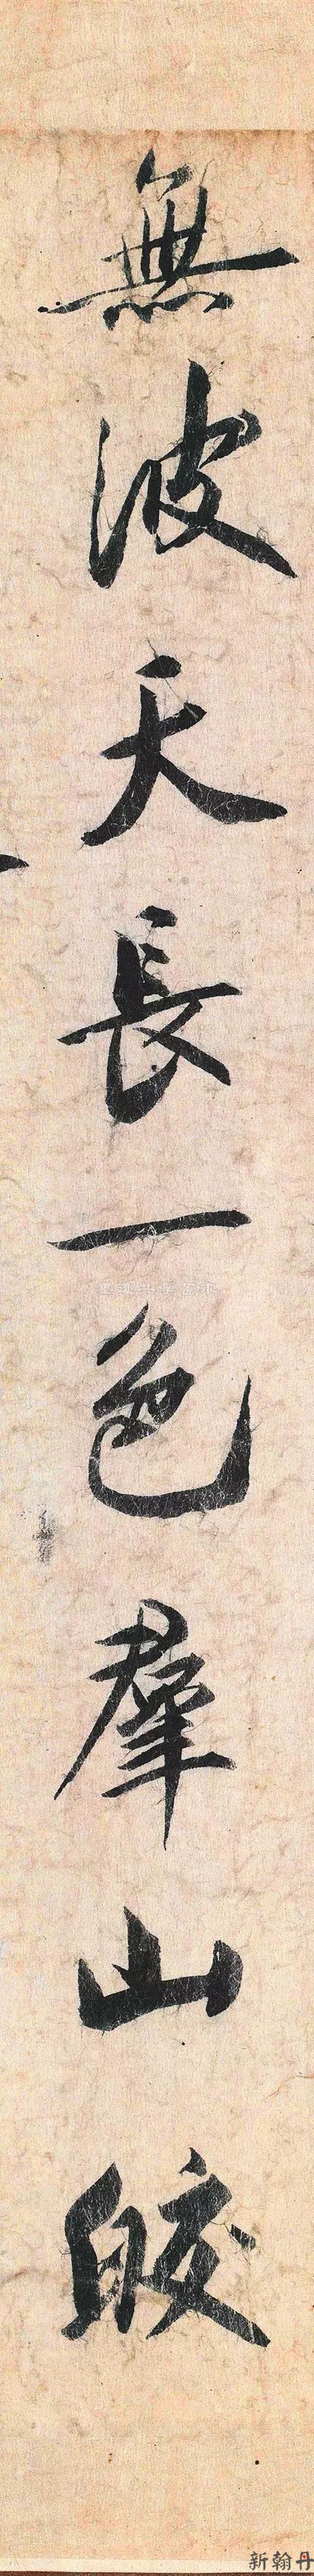 無波天長一色羣山皎
新翰丹